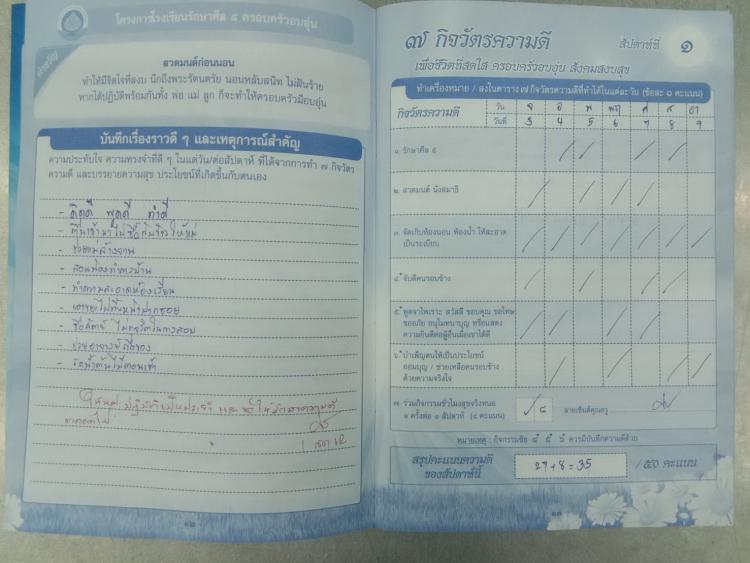 โครงการโรงเรียนรักษาศีล ๕ ครอบครัวอบอุ่น
สวดมนต์ก่อนนอน
ทำให้มีจิตใจที่สงบ นึกถึงพระรัตนตรัย นอนหลับสนิท ไม่ฝันร้าย
หากได้ปฏิบัติพร้อมกันทั้ง พ่อ แม่ ลูก ก็จะทำให้ครอบครัวมีอบอุ่น
บันทึกเรื่องราวดี ๆ และเหตุการณ์สำคัญ
ความประทับใจ ความทรงจำที่ดี ๆ ในแต่วัน/ต่อสัปดาห์ ที่ได้จากการทำ ๗ กิจวัตร
ความดี และบรรยายความสุข ประโยชน์ที่เกิดขึ้นกับตนเอง
- คิดดี พูดดี ทำดี
- ช่วยแม่ล้างจาน
- สอนน้องทำการบ้าน
- ทำความสะอาดห้องเรียน
- ซื่อสัตย์ ไม่ทุจริตในการสอบ
- ช่วยอาจารย์ถือของ
๑๒
๗ กิจวัตรความดี
สัปดาห์ที่ ๑
เพื่อชีวิตที่สดใส ครอบครัวอบอุ่น สังคมสงบสุข
ทำเครื่องหมาย / ลงในตาราง ๗ กิจวัตรความดีที่ทำได้ในแต่ละวัน (ข้อละ ๑ คะแนน)
กิจวัตรความดี วัน จ อ พ พฤ ศ ส อา
วันที่ 3 4 5 6 7 8 9
๑. รักษาศีล ๕
๒. สวดมนต์ นั่งสมาธิ
๓. จัดเก็บห้องนอน ห้องน้ำ ให้สะอาด
เป็นระเบียบ
๔. จับดีคนรอบข้าง
๕. พูดจาไพเราะ สวัสดี ขอบคุณ ขอโทษ
ขออภัย อนุโมทนาบุญ หรือแสดง
ความยินดีต่อผู้อื่นเมื่อเขาได้ดี
๖. บำเพ็ญตนให้เป็นประโยชน์
ออมบุญ / ช่วยเหลือคนรอบข้าง
ด้วยความจริงใจ
๗. ร่วมกิจกรรมชั่วโมงสุขจริงหนอ
๑ ครั้งต่อ ๑ สัปดาห์ (๘ คะแนน)
/ ๘ ลายเซ็นต์คุณครู
หมายเหตุ : กิจกรรมข้อ ๔ ๕ ๖ ควรมีบันทึกความดีด้วย
สรุปคะแนนความดี
ของสัปดาห์นี้
27+8 = 35 / ๕๐ คะแนน
๑๓